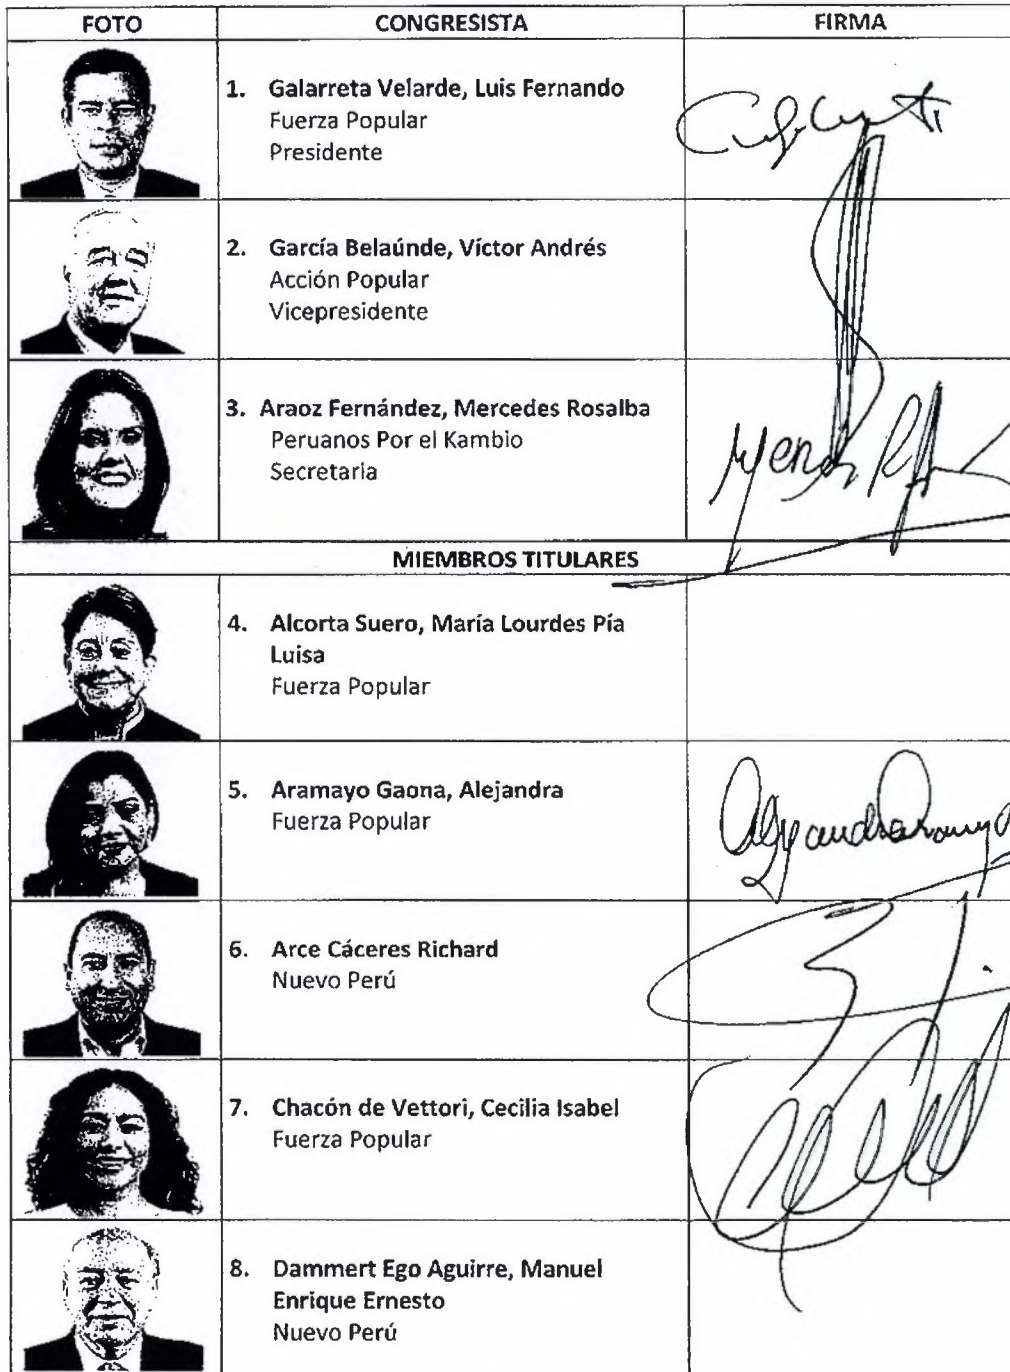 FOTO CONGRESISTA FIRMA
1. Galarreta Velarde, Luis Fernando
Fuerza Popular
Presidente
2. García Belaúnde, Víctor Andrés
Acción Popular
Vicepresidente
3. Araoz Fernández, Mercedes Rosalba
Peruanos Por el Kambio
Secretaria
MIEMBROS TITULARES
4. Alcorta Suero, María Lourdes Pía
Luisa
Fuerza Popular
5. Aramayo Gaona, Alejandra
Fuerza Popular
6. Arce Cáceres Richard
Nuevo Perú
7. Chacón de Vettori, Cecilia Isabel
Fuerza Popular
8. Dammert Ego Aguirre, Manuel
Enrique Ernesto
Nuevo Perú